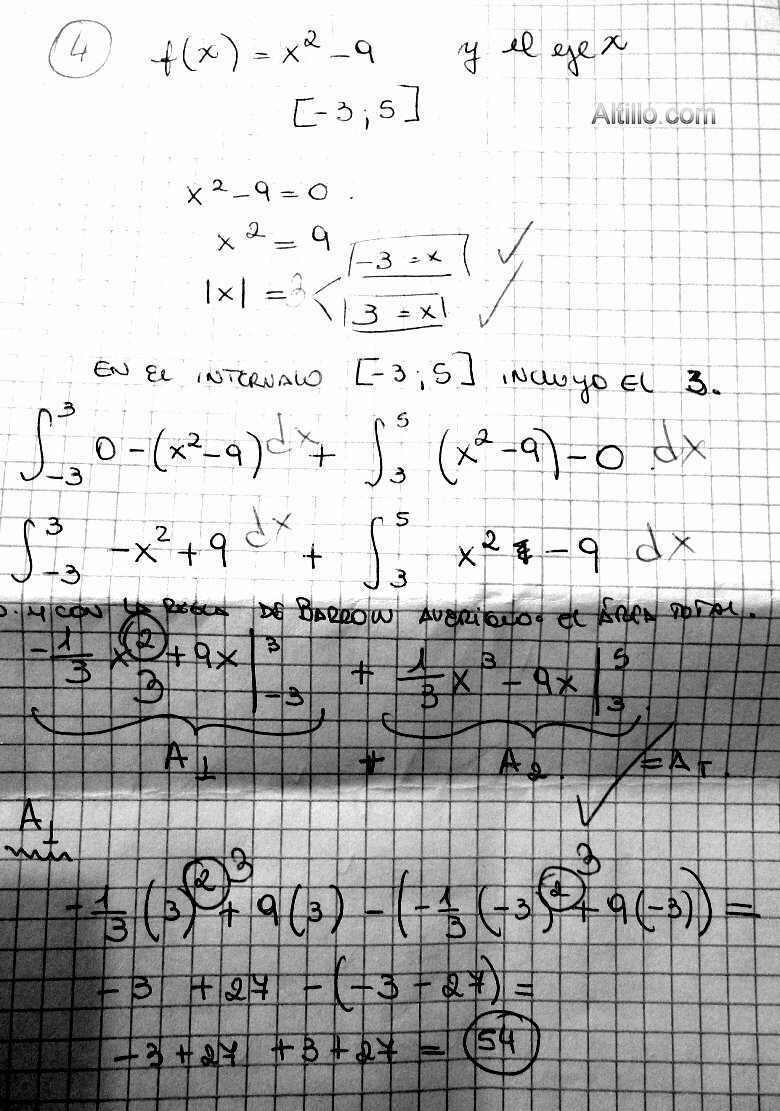 4 f(x) = x² - 9 y el eje x
[-3 ; 5]
Altillo.com
x² - 9 = 0.
x² = 9
|x| = 3 < -3 = x ✓
3 = x ✓
EN EL INTERVALO [-3 ; 5] INCLUYO EL 3.
∫₋₃³ 0 - (x² - 9) dx + ∫₃⁵ (x² - 9) - 0 dx
∫₋₃³ -x² + 9 dx + ∫₃⁵ x² - 9 dx
Y CON LA REGLA DE BARROW AVERIGUO EL ÁREA TOTAL.
-1/3 x² 3 + 9x |₋₃³ + 1/3 x³ - 9x |₃⁵
A1 + A2 = AT. ✓
A1
-1/3 (3)² 3 + 9(3) - (-1/3 (-3)² 3 + 9(-3)) =
-3 + 27 - (-3 - 27) =
-3 + 27 + 3 + 27 = 54